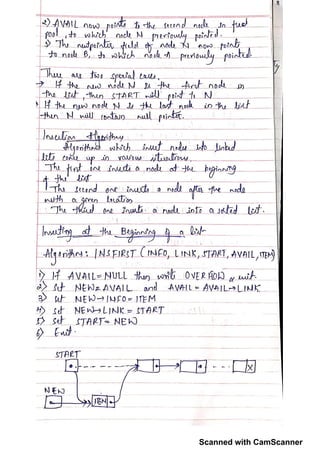 2) AVAIL now points to the second node in free
pool, to which node N previously pointed.
3) The nextpointer field of node N now points
to node B, to which node A previously pointed
There are two special cases,
→ If the new node N is the first node in
the list, then START will point to N
→ If the new node N is the last node in the list
then N will contain null pointer.
Insertion Algorithms
Algorithms which insert nodes into linked
lists come up in various situations.
The first one inserts a node at the beginning
of the list
The second one inserts a node after the node
with a given location
The third one inserts a node into a sorted list.
Inserting at the Beginning of a list
Algorithm: INSFIRST (INFO, LINK, START, AVAIL, ITEM)
1) If AVAIL = NULL then write OVERFLOW & exit.
2) Set NEW = AVAIL and AVAIL = AVAIL → LINK
3) Set NEW → INFO = ITEM
4) Set NEW → LINK = START
5) Set START = NEW
6) Exit.
START
X
NEW
ITEM
Scanned with CamScanner